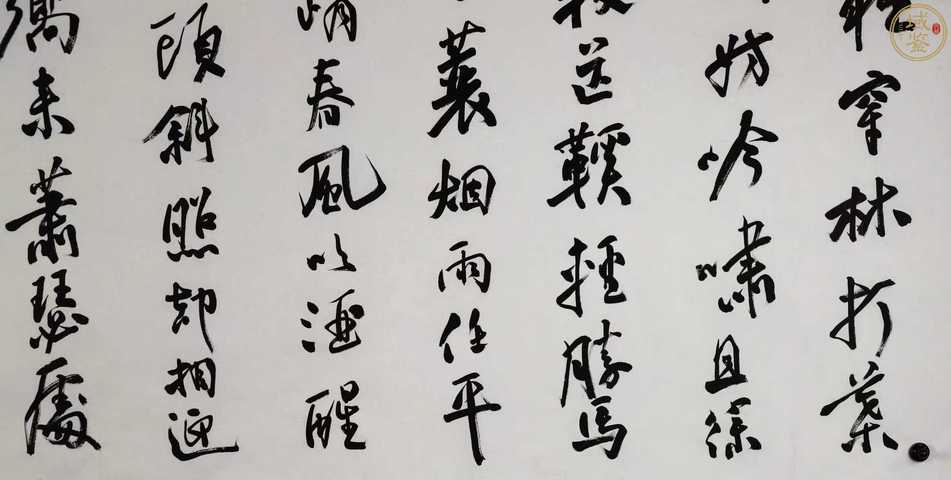 穿林打葉
妨吟嘯且徐
芒鞵輕勝馬
蓑烟雨任平
峭春風吹酒醒
頭斜照却相迎
嚮来蕭瑟處